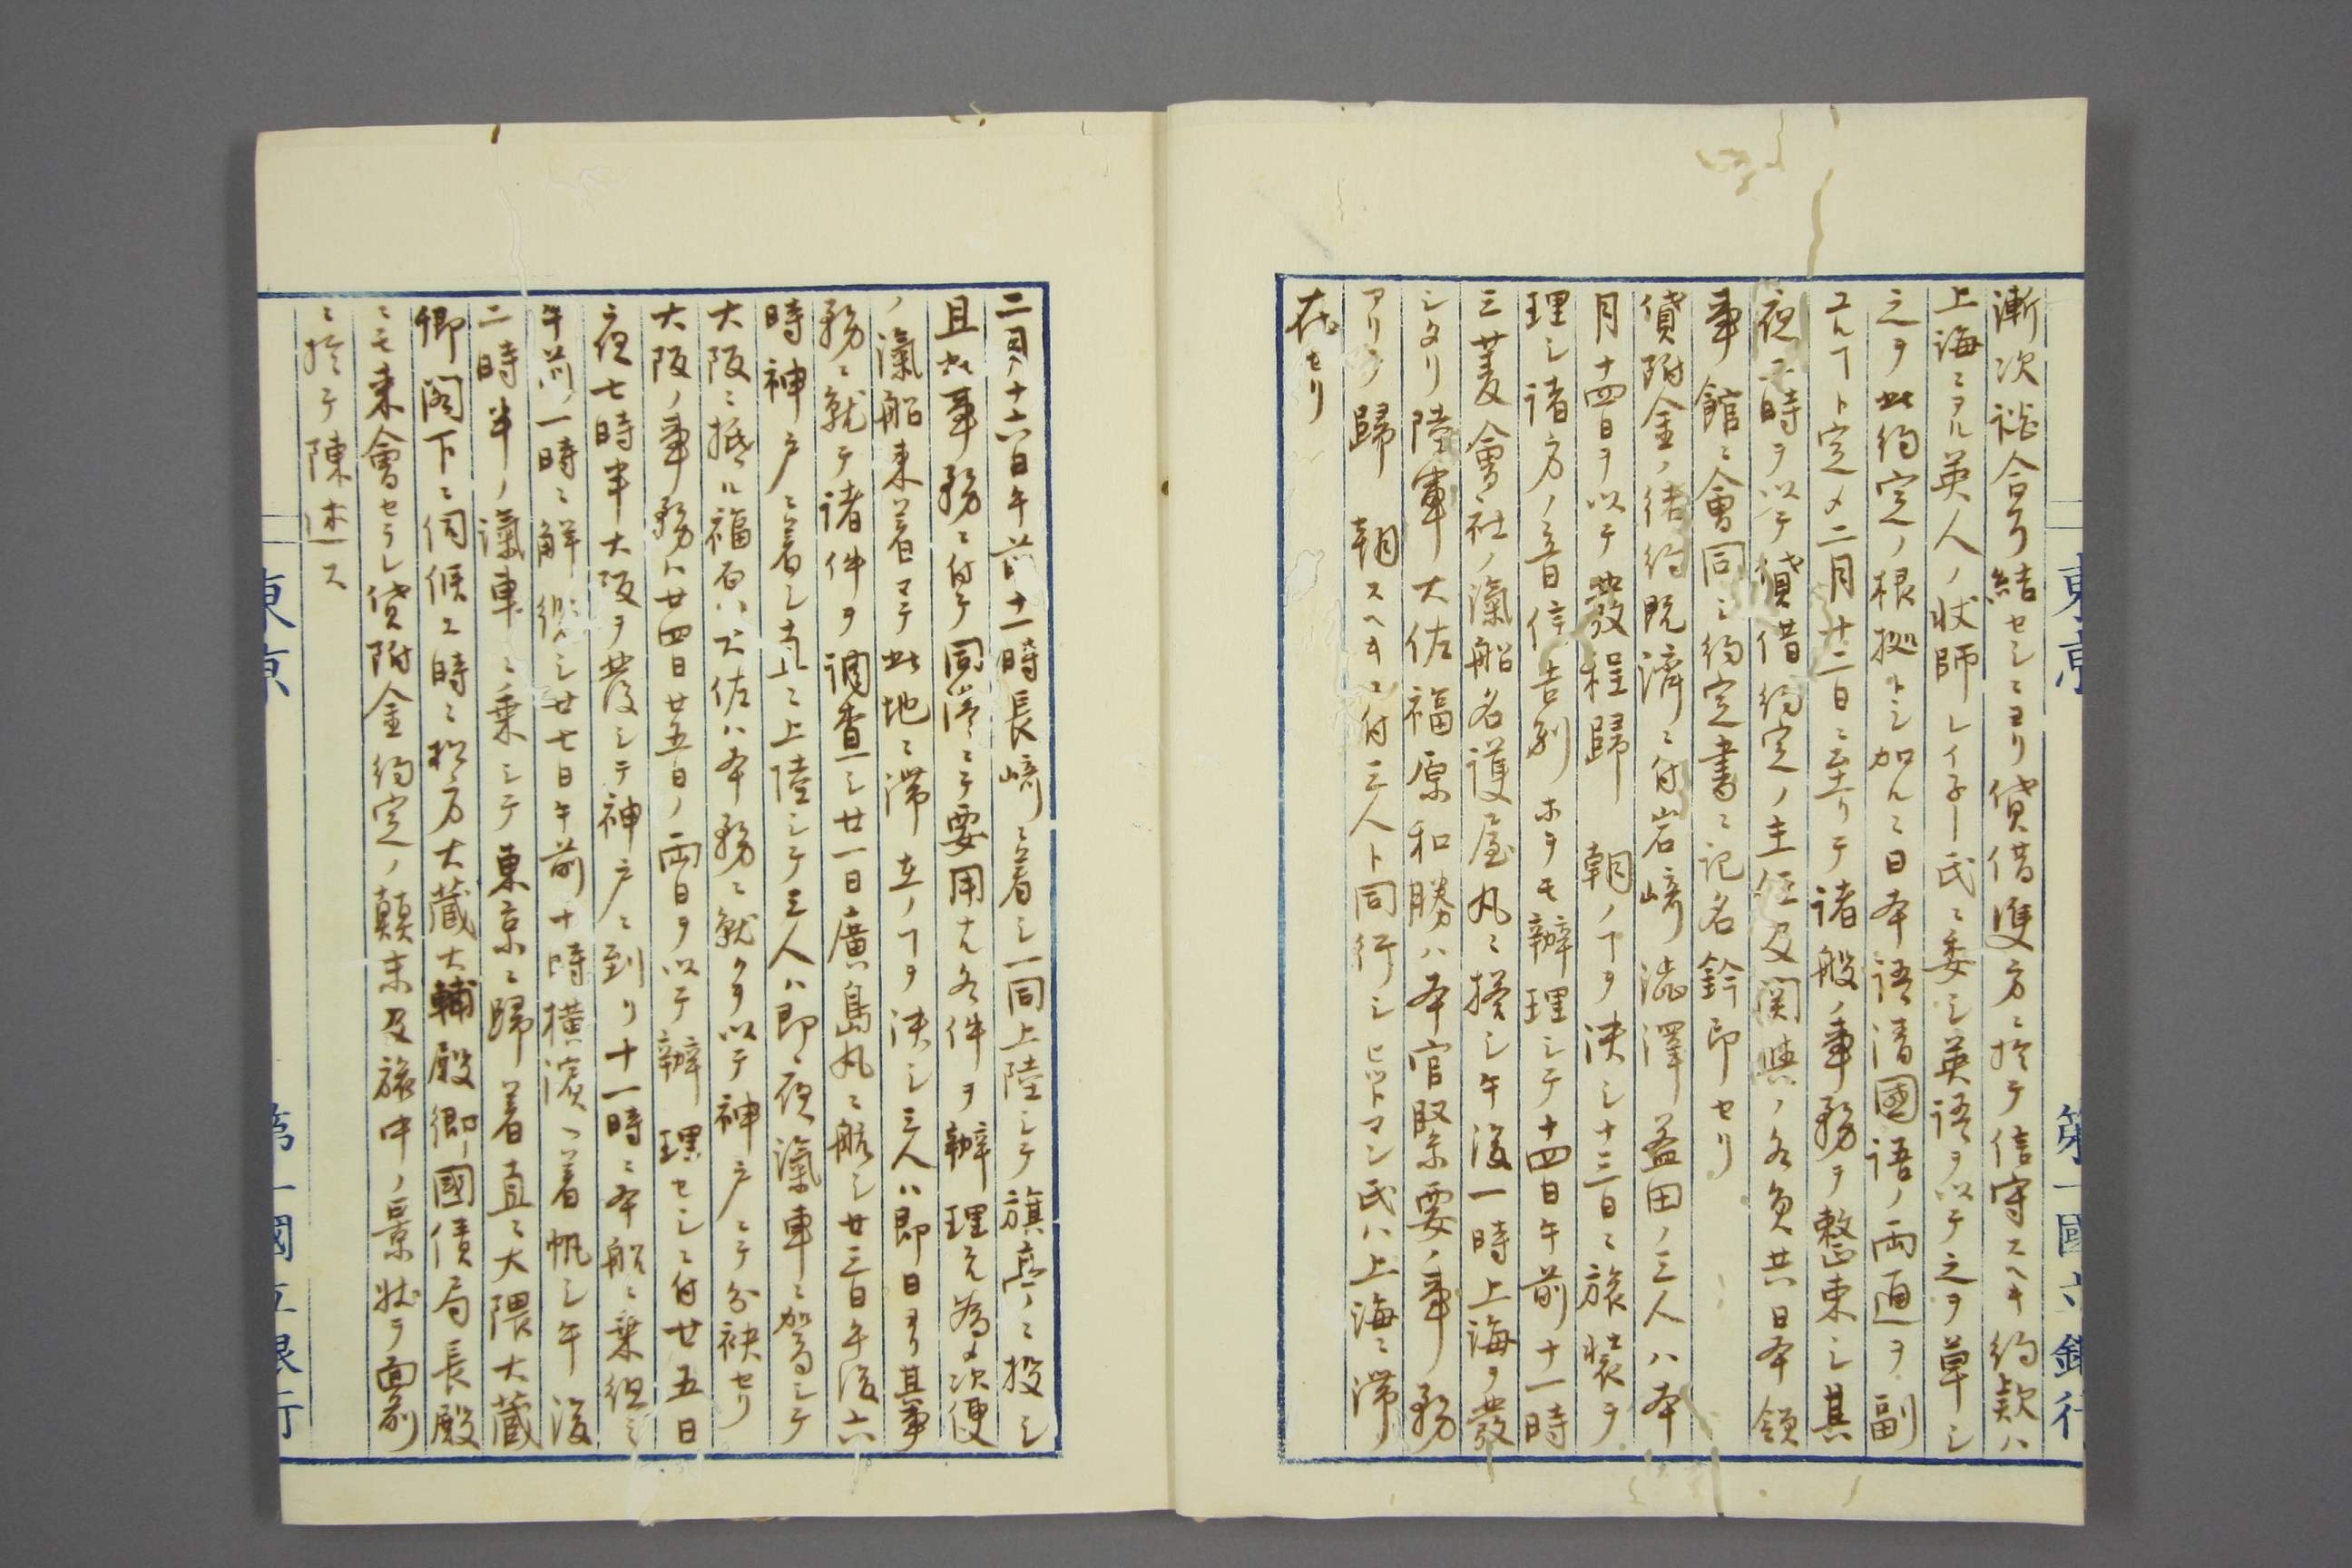 東京
第一國立銀行
漸次談合ヲ結セシニヨリ貸借双方ニ於テ信守スヘキ約款ハ
上海ニアル英人ノ状師レイネー氏ニ委シ英語ヲ以テ之ヲ草シ
之ヲ此約定ノ根拠トシ加ルニ日本語清國語ノ両通ヲ副
ユルヿト定メ二月廿二日ニ至リテ諸般ノ事務ヲ整束シ其
夜 時ヲ以テ貸借約定ノ主任及関與ノ各員共日本領
事館ニ會同シ約定書ニ記名鈐印セリ
貸附金ノ結約既済ニ付岩﨑澁澤益田ノ三人ハ本
月十四日ヲ以テ發程歸 朝ノヿヲ决シ十三日ニ旅装ヲ
理シ諸方ノ音信告別 ホヲモ辦理シテ十四日午前十一時
三菱會社ノ滊船名護屋丸ニ搭シ午後一時上海ヲ發
シタリ陸軍大佐福原和勝ハ本官緊要ノ事務
アリテ歸 朝スヘキニ付三人ト同行シピットマン氏ハ上海ニ滞
在セリ
二月八十六日午前十一時長﨑ニ着シ一同上陸シテ旗亭ニ投シ
且此事務ニ付テ同港ニテ要用ナル各件ヲ辦理スル為メ次便
ノ滊船来着マテ此地ニ滞在ノヿヲ决シ三人ハ即日ヨリ其事
務ニ就テ諸件ヲ調査シ廿一日廣島丸ニ航シ廿三日午後六
時神戸ニ着シ直ニ上陸シテ三人ハ即夜滊車ニ駕シテ
大阪ニ抵ル福原大佐ハ本務ニ就クヲ以テ神戸ニテ分袂セリ
大阪ノ事務ハ廿四日廿五日ノ両日ヲ以テ辦理セシニ付廿五日
夜七時半大阪ヲ發シテ神戸ニ到リ十一時ニ本船ニ乗組シ
午前一時ニ解纜シ廿七日午前十時横濱ニ着帆シ午後
二時半ノ滊車ニ乗シテ東京ニ歸着直ニ大隈大藏
卿閣下ニ伺候ス時ニ松方大藏大輔殿郷國債局長殿
ニモ来會セラレ貸附金約定ノ顛末及旅中ノ景状ヲ面前
ニ於テ陳述ス
東京
第一國立銀行